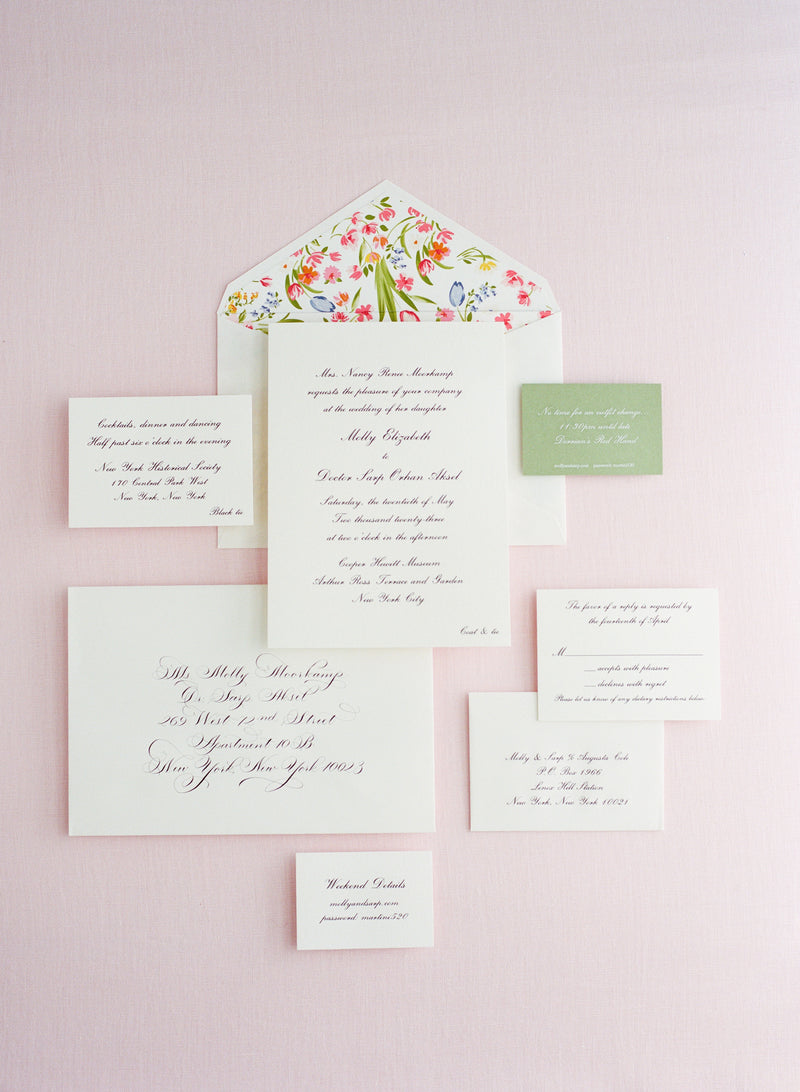 Mrs. Nancy Renee Moorkamp
requests the pleasure of your company
at the wedding of her daughter
Molly Elizabeth
to
Doctor Sarp Orhan Aksel
Saturday, the twentieth of May
Two thousand twenty-three
at two o'clock in the afternoon
Cooper Hewitt Museum
Arthur Ross Terrace and Garden
New York City
Coat & tie
Cocktails, dinner and dancing
Half past six o'clock in the evening
New York Historical Society
170 Central Park West
New York, New York
Black tie
No time for an outfit change...
11:30pm until late
Dorrian's Red Hand
mollyandsarp.com password: martini520
Ms. Molly Moorkamp
Dr. Sarp Aksel
269 West 72nd Street
Apartment 10B
New York, New York 10023
The favor of a reply is requested by
the fourteenth of April
M
accepts with pleasure
declines with regret
Please let us know of any dietary restrictions below.
Molly & Sarp % Augusta Cole
P.O. Box 1966
Lenox Hill Station
New York, New York 10021
Weekend Details
mollyandsarp.com
password: martini520